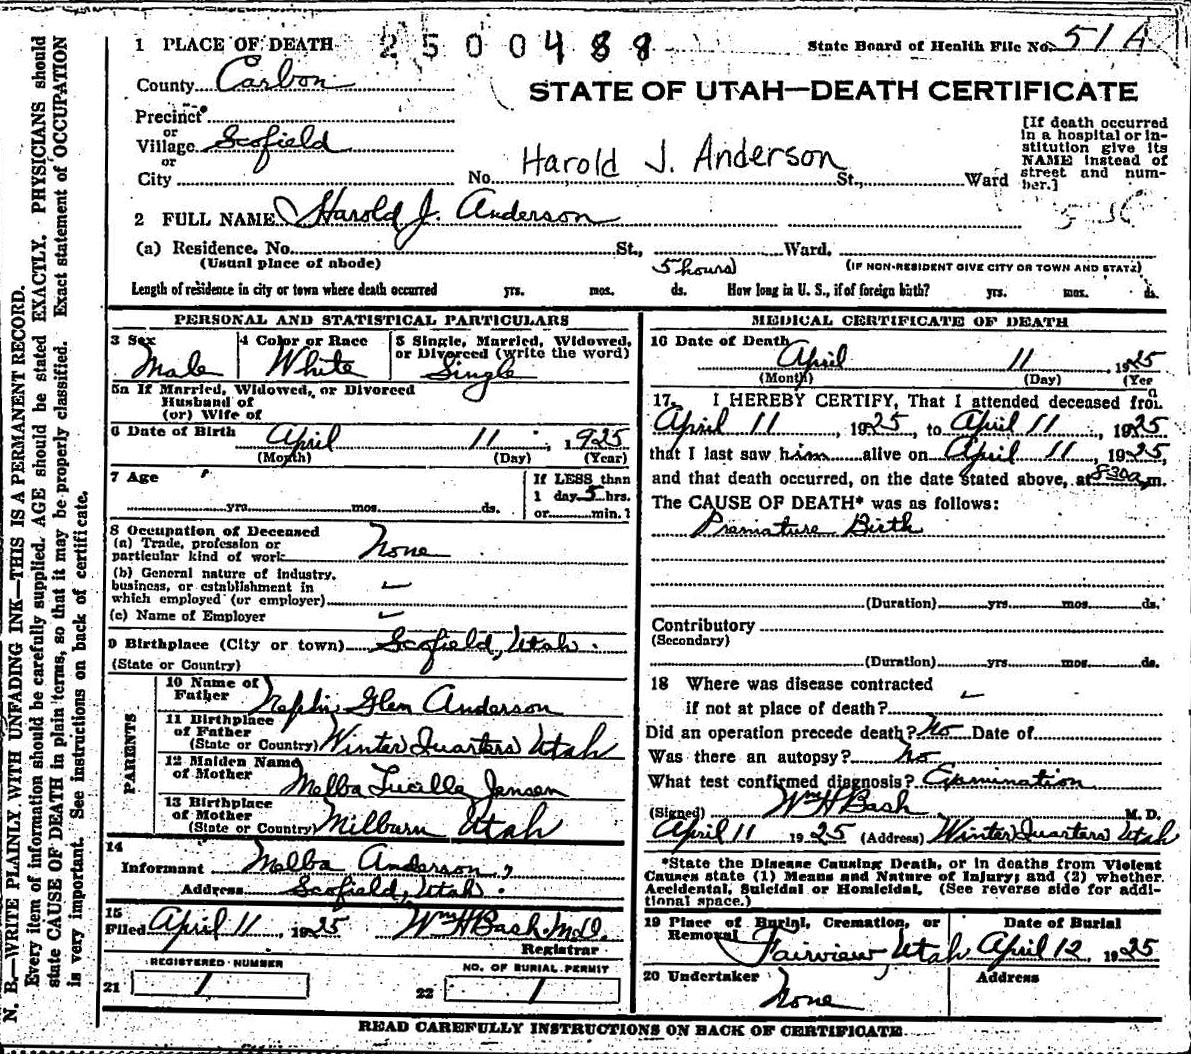 1 PLACE OF DEATH 2500488 State Board of Health File No. 51A
County Carbon
STATE OF UTAH—DEATH CERTIFICATE
Precinct
or
Village Scofield
or
City No. Harold J. Anderson St., Ward
[If death occurred
in a hospital or in-
stitution give its
NAME instead of
street and num-
ber.]
2 FULL NAME Harold J. Anderson
(a) Residence. No. St., Ward.
(Usual place of abode) 5 hours (IF NON-RESIDENT GIVE CITY OR TOWN AND STATE)
Length of residence in city or town where death occurred yrs. mos. ds. How long in U. S., if of foreign birth? yrs. mos. ds.
PERSONAL AND STATISTICAL PARTICULARS
3 Sex 4 Color or Race 5 Single, Married, Widowed,
or Divorced (write the word)
Male White Single
5a If Married, Widowed, or Divorced
Husband of
(or) Wife of
6 Date of Birth April 11, 1925
(Month) (Day) (Year)
7 Age If LESS than
1 day 5 hrs.
yrs. mos. ds. or min.
8 Occupation of Deceased
(a) Trade, profession or
particular kind of work None
(b) General nature of industry,
business, or establishment in
which employed (or employer)
(c) Name of Employer
9 Birthplace (City or town) Scofield, Utah.
(State or Country)
PARENTS
10 Name of
Father Nephi Glen Anderson
11 Birthplace
of Father
(State or Country) Winter Quarters Utah
12 Maiden Name
of Mother Melba Lucille Jensen
13 Birthplace
of Mother
(State or Country) Milburn Utah
14
Informant Melba Anderson,
Address Scofield, Utah.
15
Filed April 11, 1925 Wm H Bash. M.D.
Registrar
REGISTERED NUMBER NO. OF BURIAL PERMIT
21 1 22 1
MEDICAL CERTIFICATE OF DEATH
16 Date of Death April 11, 1925
(Month) (Day) (Yea
17. I HEREBY CERTIFY, That I attended deceased from
April 11, 1925, to April 11, 1925
that I last saw him alive on April 11, 1925,
and that death occurred, on the date stated above, at 8:30 a m.
The CAUSE OF DEATH* was as follows:
Premature Birth
(Duration) yrs. mos. ds.
Contributory
(Secondary)
(Duration) yrs. mos. ds.
18 Where was disease contracted
if not at place of death?
Did an operation precede death? No Date of
Was there an autopsy? No
What test confirmed diagnosis? Examination
(Signed) Wm H Bash M. D.
April 11 1925 (Address) Winter Quarters Utah
*State the Disease Causing Death, or in deaths from Violent
Causes state (1) Means and Nature of Injury; and (2) whether
Accidental, Suicidal or Homicidal. (See reverse side for addi-
tional space.)
19 Place of Burial, Cremation, or Date of Burial
Removal Fairview, Utah April 12, 1925
20 Undertaker Address
None
READ CAREFULLY INSTRUCTIONS ON BACK OF CERTIFICATE
N. B.—WRITE PLAINLY, WITH UNFADING INK—THIS IS A PERMANENT RECORD.
Every item of information should be carefully supplied. AGE should be stated EXACTLY. PHYSICIANS should
state CAUSE OF DEATH in plain terms, so that it may be properly classified. Exact statement of OCCUPATION
is very important. See instructions on back of certificate.